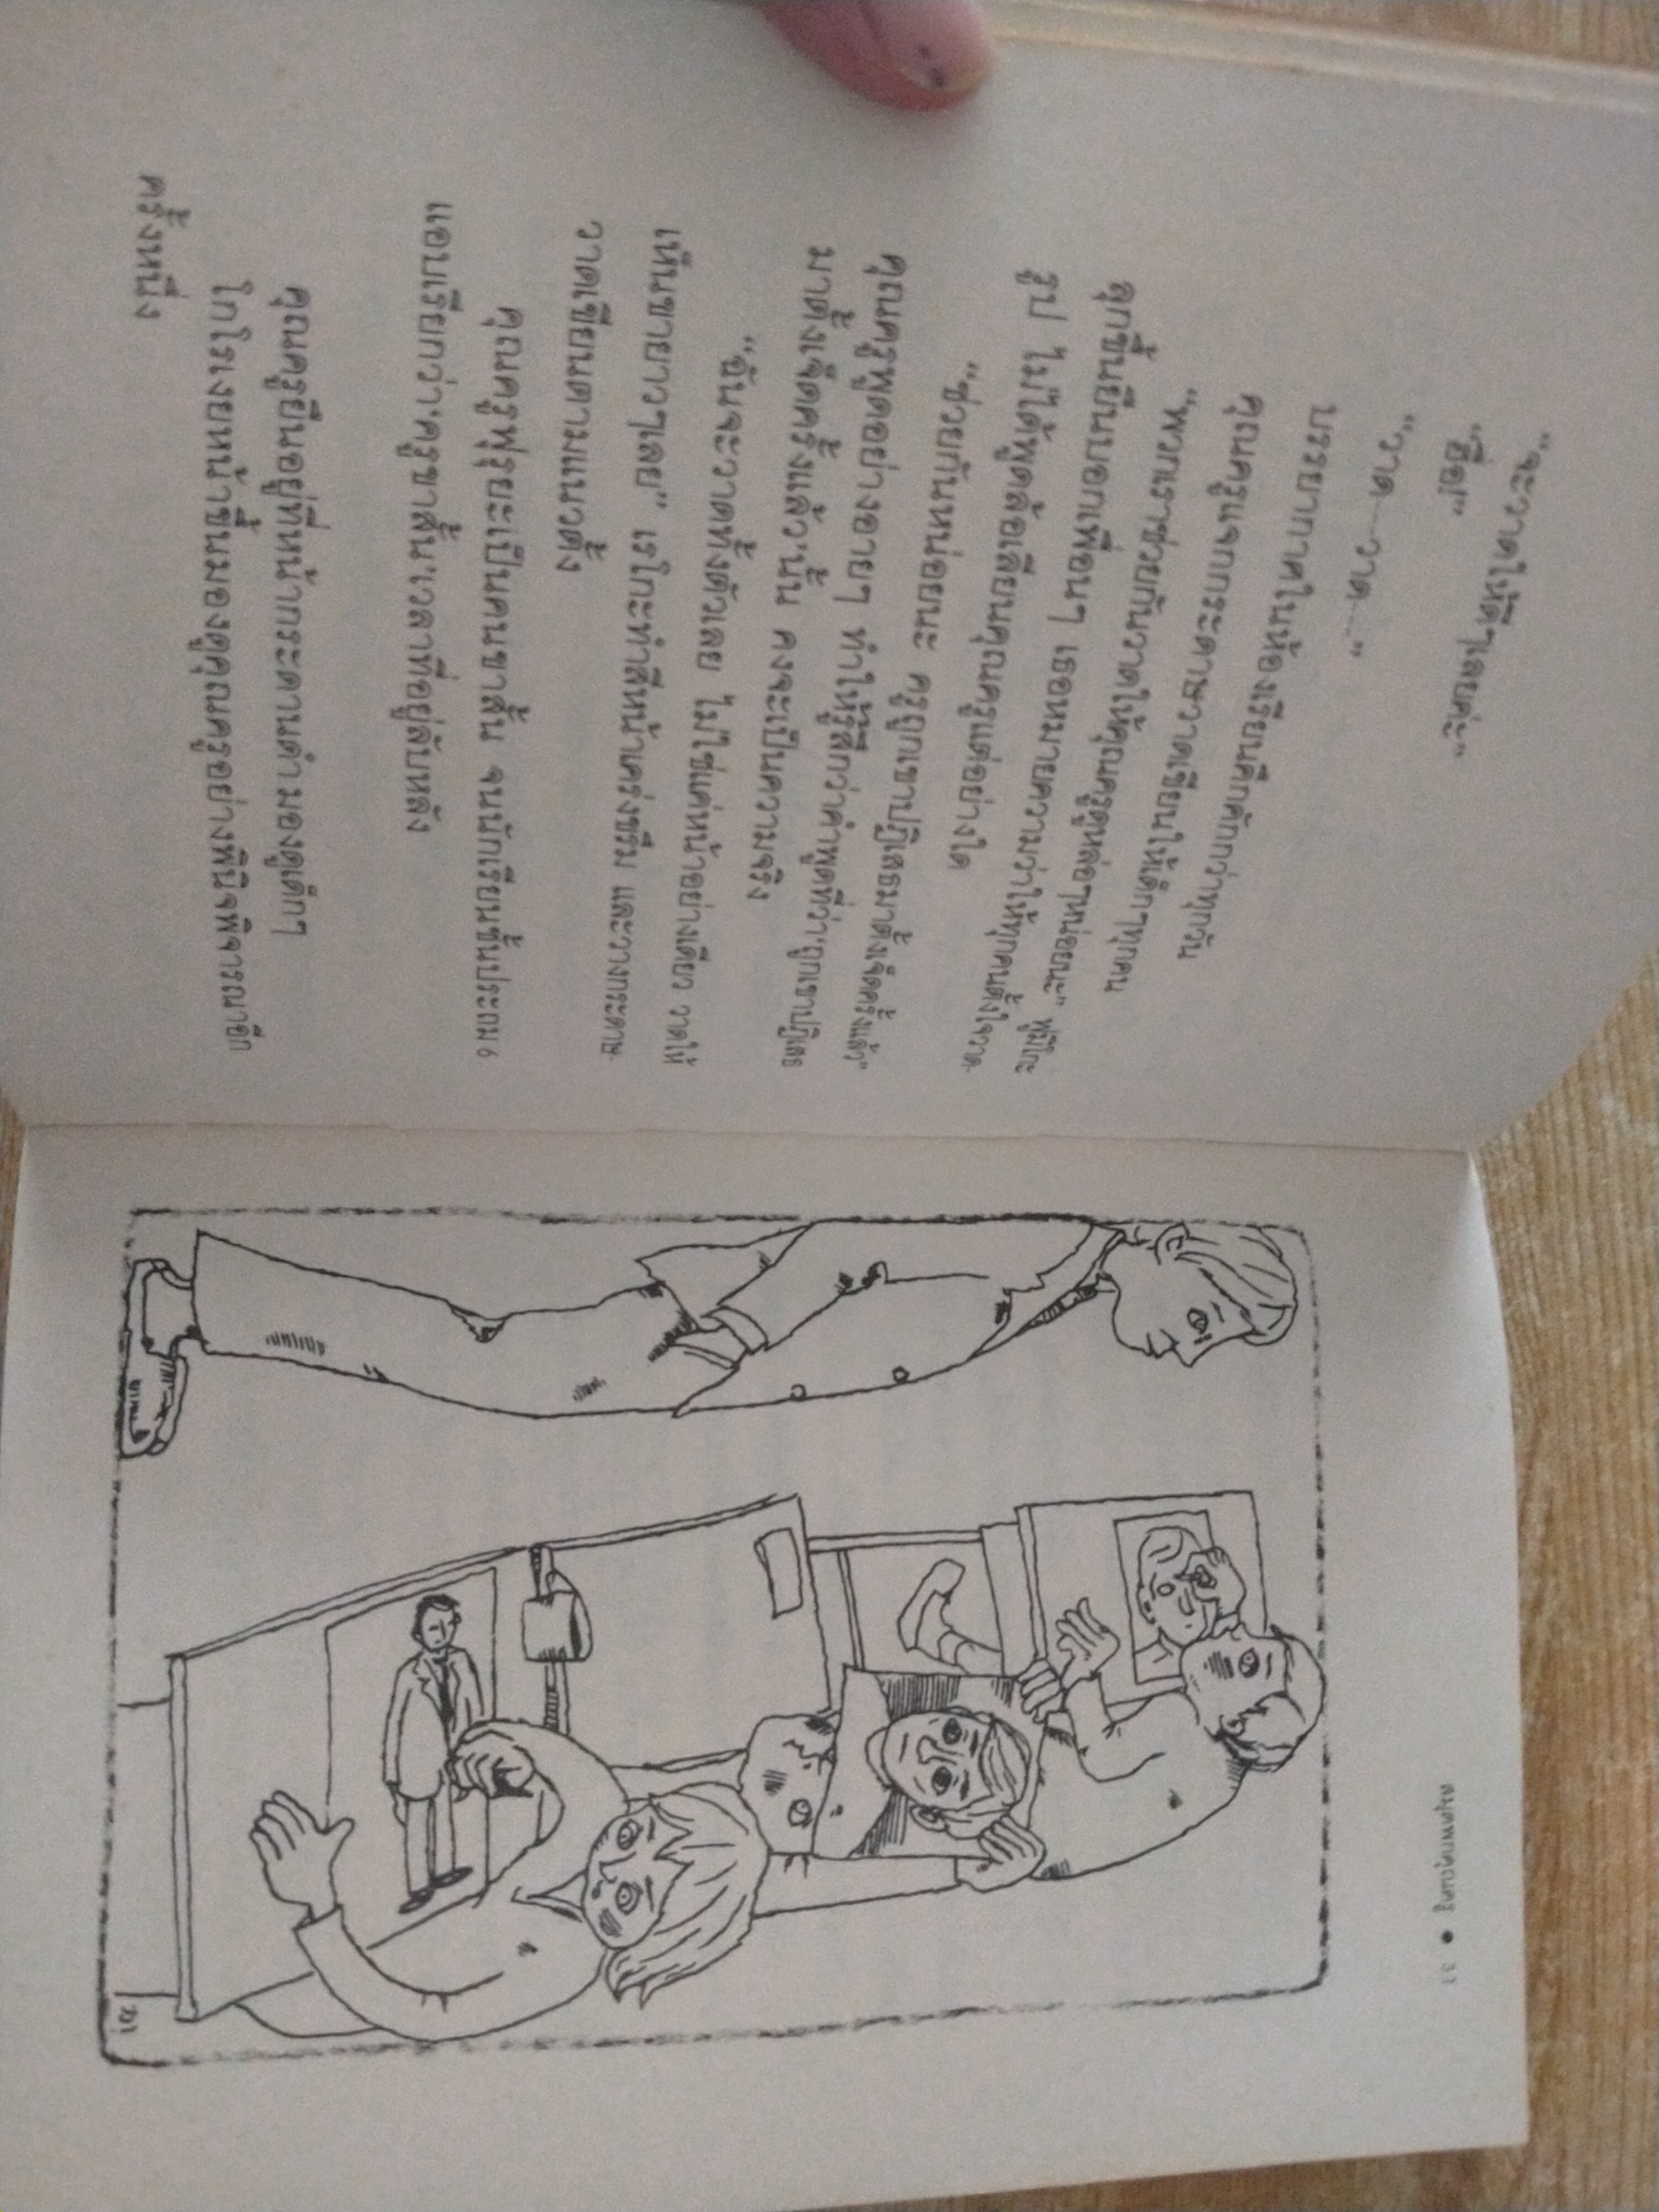 “จะวาดให้ดีๆเลยค่ะ”
“ฮื่อ!”
“วาด---วาด---”
บรรยากาศในห้องเรียนคึกคักกว่าทุกวัน
คุณครูแจกกระดาษวาดเขียนให้เด็กๆทุกคน
“พวกเราช่วยกันวาดให้คุณครูดูหล่อๆหน่อยนะ” ฟูมิโกะ
ลุกขึ้นยืนบอกเพื่อนๆ เธอหมายความว่าให้ทุกคนตั้งใจวาด
รูป ไม่ได้พูดล้อเลียนคุณครูแต่อย่างใด
“ช่วยกันหน่อยนะ ครูถูกเขาปฏิเสธมาตั้งเจ็ดครั้งแล้ว”
คุณครูพูดอย่างอายๆ ทำให้รู้สึกว่าคำพูดที่ว่า‘ถูกเขาปฏิเสธ
มาตั้งเจ็ดครั้งแล้ว’นั้น คงจะเป็นความจริง
“ฉันจะวาดทั้งตัวเลย ไม่ใช่แค่หน้าอย่างเดียว วาดให้
เห็นขายาวๆเลย” เรโกะทำสีหน้าเคร่งขรึม และวางกระดาษ
วาดเขียนตามแนวตั้ง
คุณครูฟุรุยะเป็นคนขาสั้น จนนักเรียนชั้นประถม 6
แอบเรียกว่า‘ครูขาสั้น’เวลาที่อยู่ลับหลัง
คุณครูยืนอยู่ที่หน้ากระดานดำมองดูเด็กๆ
โกโรเงยหน้าขึ้นมองดูคุณครูอย่างพินิจพิจารณาอีก
ครั้งหนึ่ง
31 •